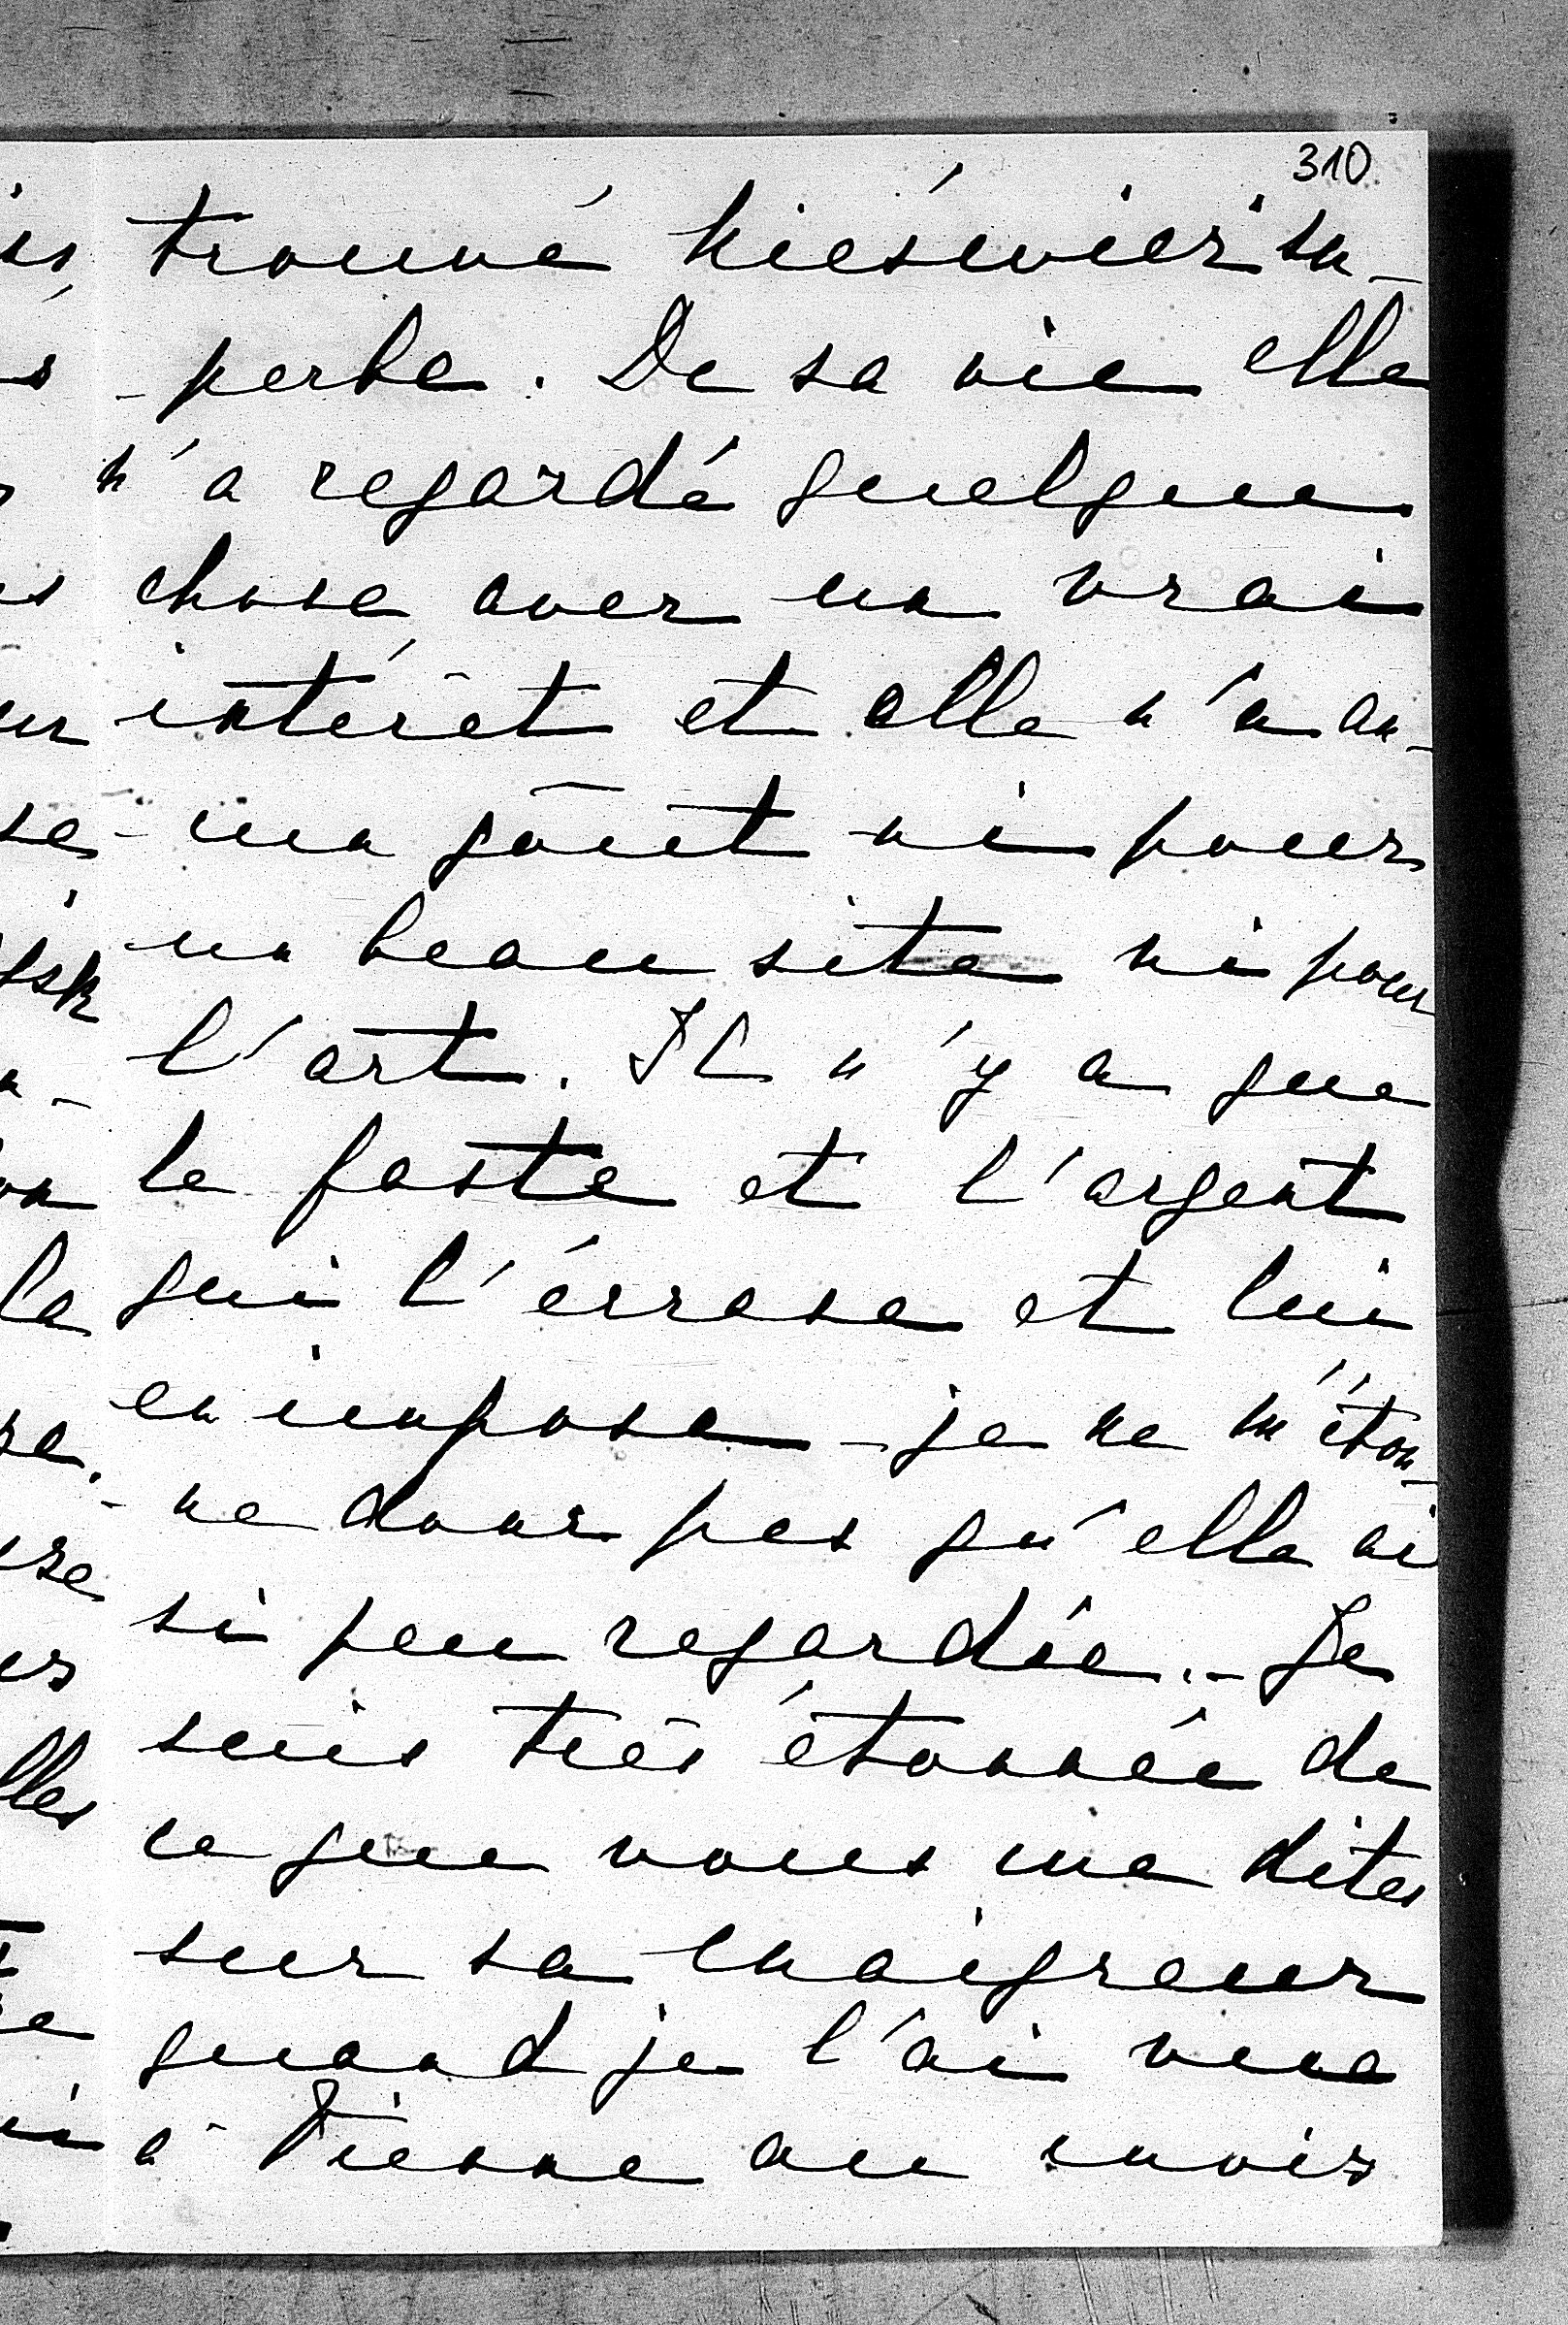 310
trouvé Kiéswierz su-
-perbe. De sa vie elle
n'a regardé quelque
chose avec un vrai
intérêt et elle n'a au-
-cun goût ni pour
un beau site ni pour
l'art. Il n'y a que
le faste et l'argent
qui l'écrase et lui
en impose - je ne m'éton-
-ne donc pas qu'elle ai
si peu regardée. - Je
suis très étonnée de
ce que vous me dites
sur sa maigreur
quand je l'ai vue
à Vienne au mois